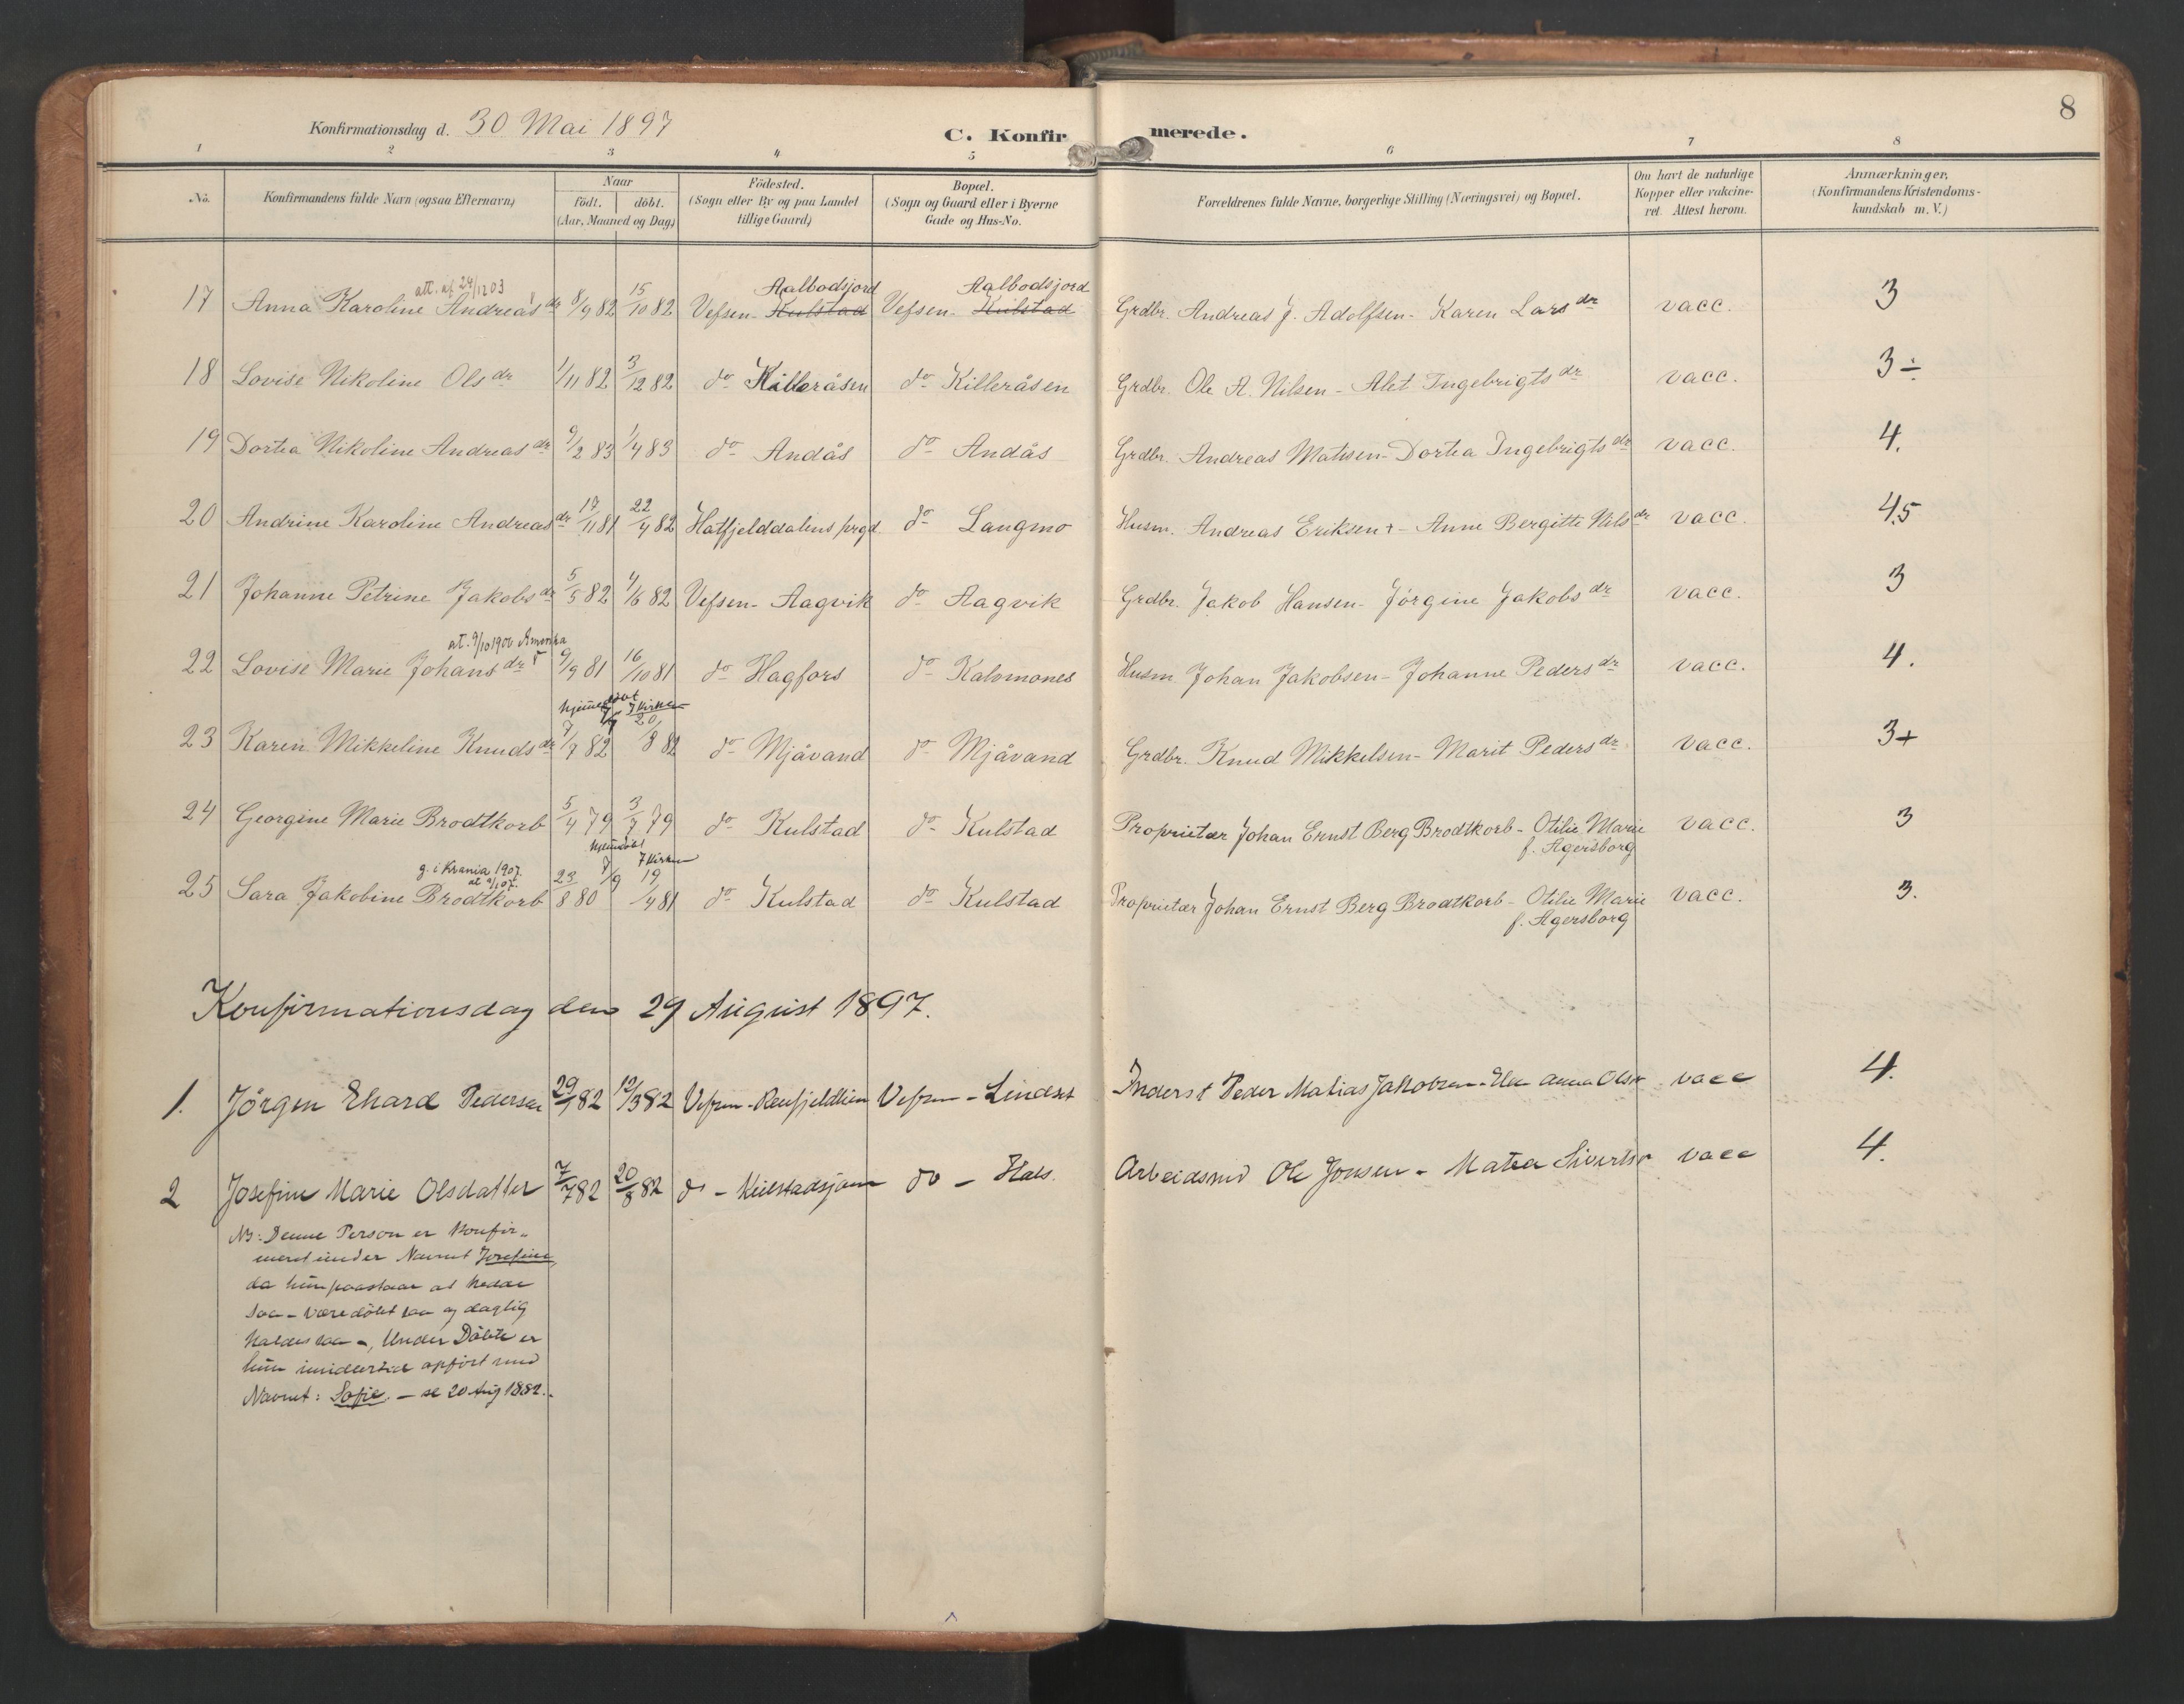 8
Konfirmationsdag d. 30 Mai 1897
C. Konfirmerede.
1 2 3 4 5 6 7 8
No. Konfirmandens fulde Navn (ogsaa Efternavn) Naar födt. döbt. (Aar, Maaned og Dag) Födested. (Sogn eller By og paa Landet tillige Gaard) Bopæl. (Sogn og Gaard eller i Byerne Gade og Hus-No. Forældrenes fulde Navne, borgerlige Stilling (Næringsvei) og Bopæl. Om havt de naturlige Kopper eller vakcineret. Attest herom. Anmærkninger, (Konfirmandens Kristendomskundskab m. V.)
att. af 24/12 03 Aalbodsjord Aalbodsjord
17 Anna Karoline Andreasdr 8/9 82 15/10 82 Vefsen- Kulstad Vefsen- Kulstad Grdbr. Andreas J. Adolfsen- Karen Larsdr vacc. 3
18 Lovise Nikoline Olsdr 1/11 82 3/12 82 do Killeråsen do Killeråsen Grdbr. Ole A. Nilsen - Alet Ingebrigtsdr vacc. 3÷
19 Dortea Nikoline Andreasdr 9/2 83 1/4 83 do Andås do Andås Grdbr. Andreas Matisen- Dortea Ingebrigtsdr vacc. 4.
20 Andrine Karoline Andreasdr 17/11 81 22/4 82 Hatfjelddalens prgd. do Langmo Husm. Andreas Eriksen + - Anne Bergitte Nilsdr vacc. 4.5
21 Johanne Petrine Jakobsdr 5/5 82 4/6 82 Vefsen- Aagvik do Aagvik Grdbr. Jakob Hansen- Jörgine Jakobsdr vacc. 3
at. 9/10 1900 Amerika
22 Lovise Marie Johansdr 9/9 81 16/10 81 do Hagfors do Kalvmones Husm Johan Jakobsen- Johanne Pedersdr vacc. 4.
hjemmedöbt i Kirken
23 Karen Mikkeline Knudsdr 7/7 82 20/8 82 do Mjåvand do Mjåvand Grdbr. Knud Mikkelsen- Marit Pedersdr. vacc. 3+
24 Georgine Marie Brodtkorb 5/4 79 3/7 79 do Kulstad do Kulstad Proprietær Johan Ernst Berg Brodtkorb - Otilie Marie f. Agersborg vacc. 3
g. i Krania 1907. hjemdöbt 7/9 i Kirken
25 Sara Jakobine Brodtkorb 23/8 80 19/4 81 do Kulstad do Kulstad Proprietær Johan Ernst Berg Brodtkorb - Otilie Marie f. Agersborg vacc. 3.
Konfirmationsdag den 29 August 1897.
1. Jörgen Ehard Pedersen 29/1 82 12/3 82 Vefsen - Renfjeldlien Vefsen - Lindset Inderst Peder Matias Jakobsen - Elen Anna Olsdr vacc 4.
2 Josefine Marie Olsdatter 7/7 82 20/8 82 do - Kulstadsjöen do - Hals. Arbeidsmd Ole Jonsen - Matea Sivertsdr vacc 4.
NB: Denne Person er konfir-
meret under Navnet Josefine,
da hun paastaar at hedde
saa - være döbt saa og daglig
kaldes saa -, Under Döbte er
hun imidlertid opfört med
Navnet: Sofie. - se 20 Aug 1882.